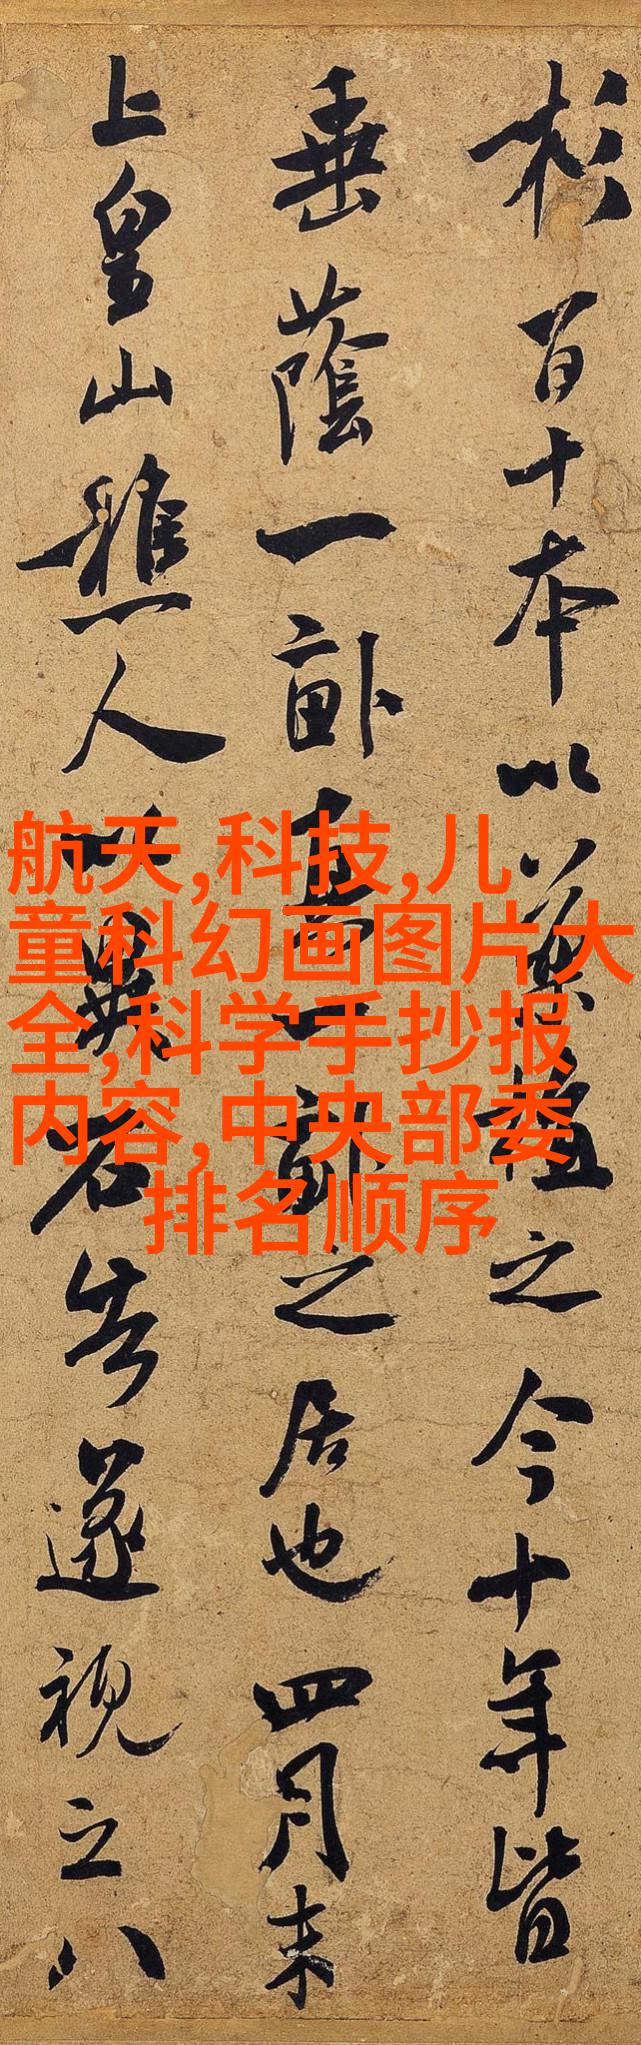 杉百十本以藥植之今十年皆
垂蔭一畝真一畝之居也四月末
上皇山樵人以異石告遂視之八
航天,科技,儿
童科幻画图片大
全,科学手抄报
内容,中央部委
排名顺序